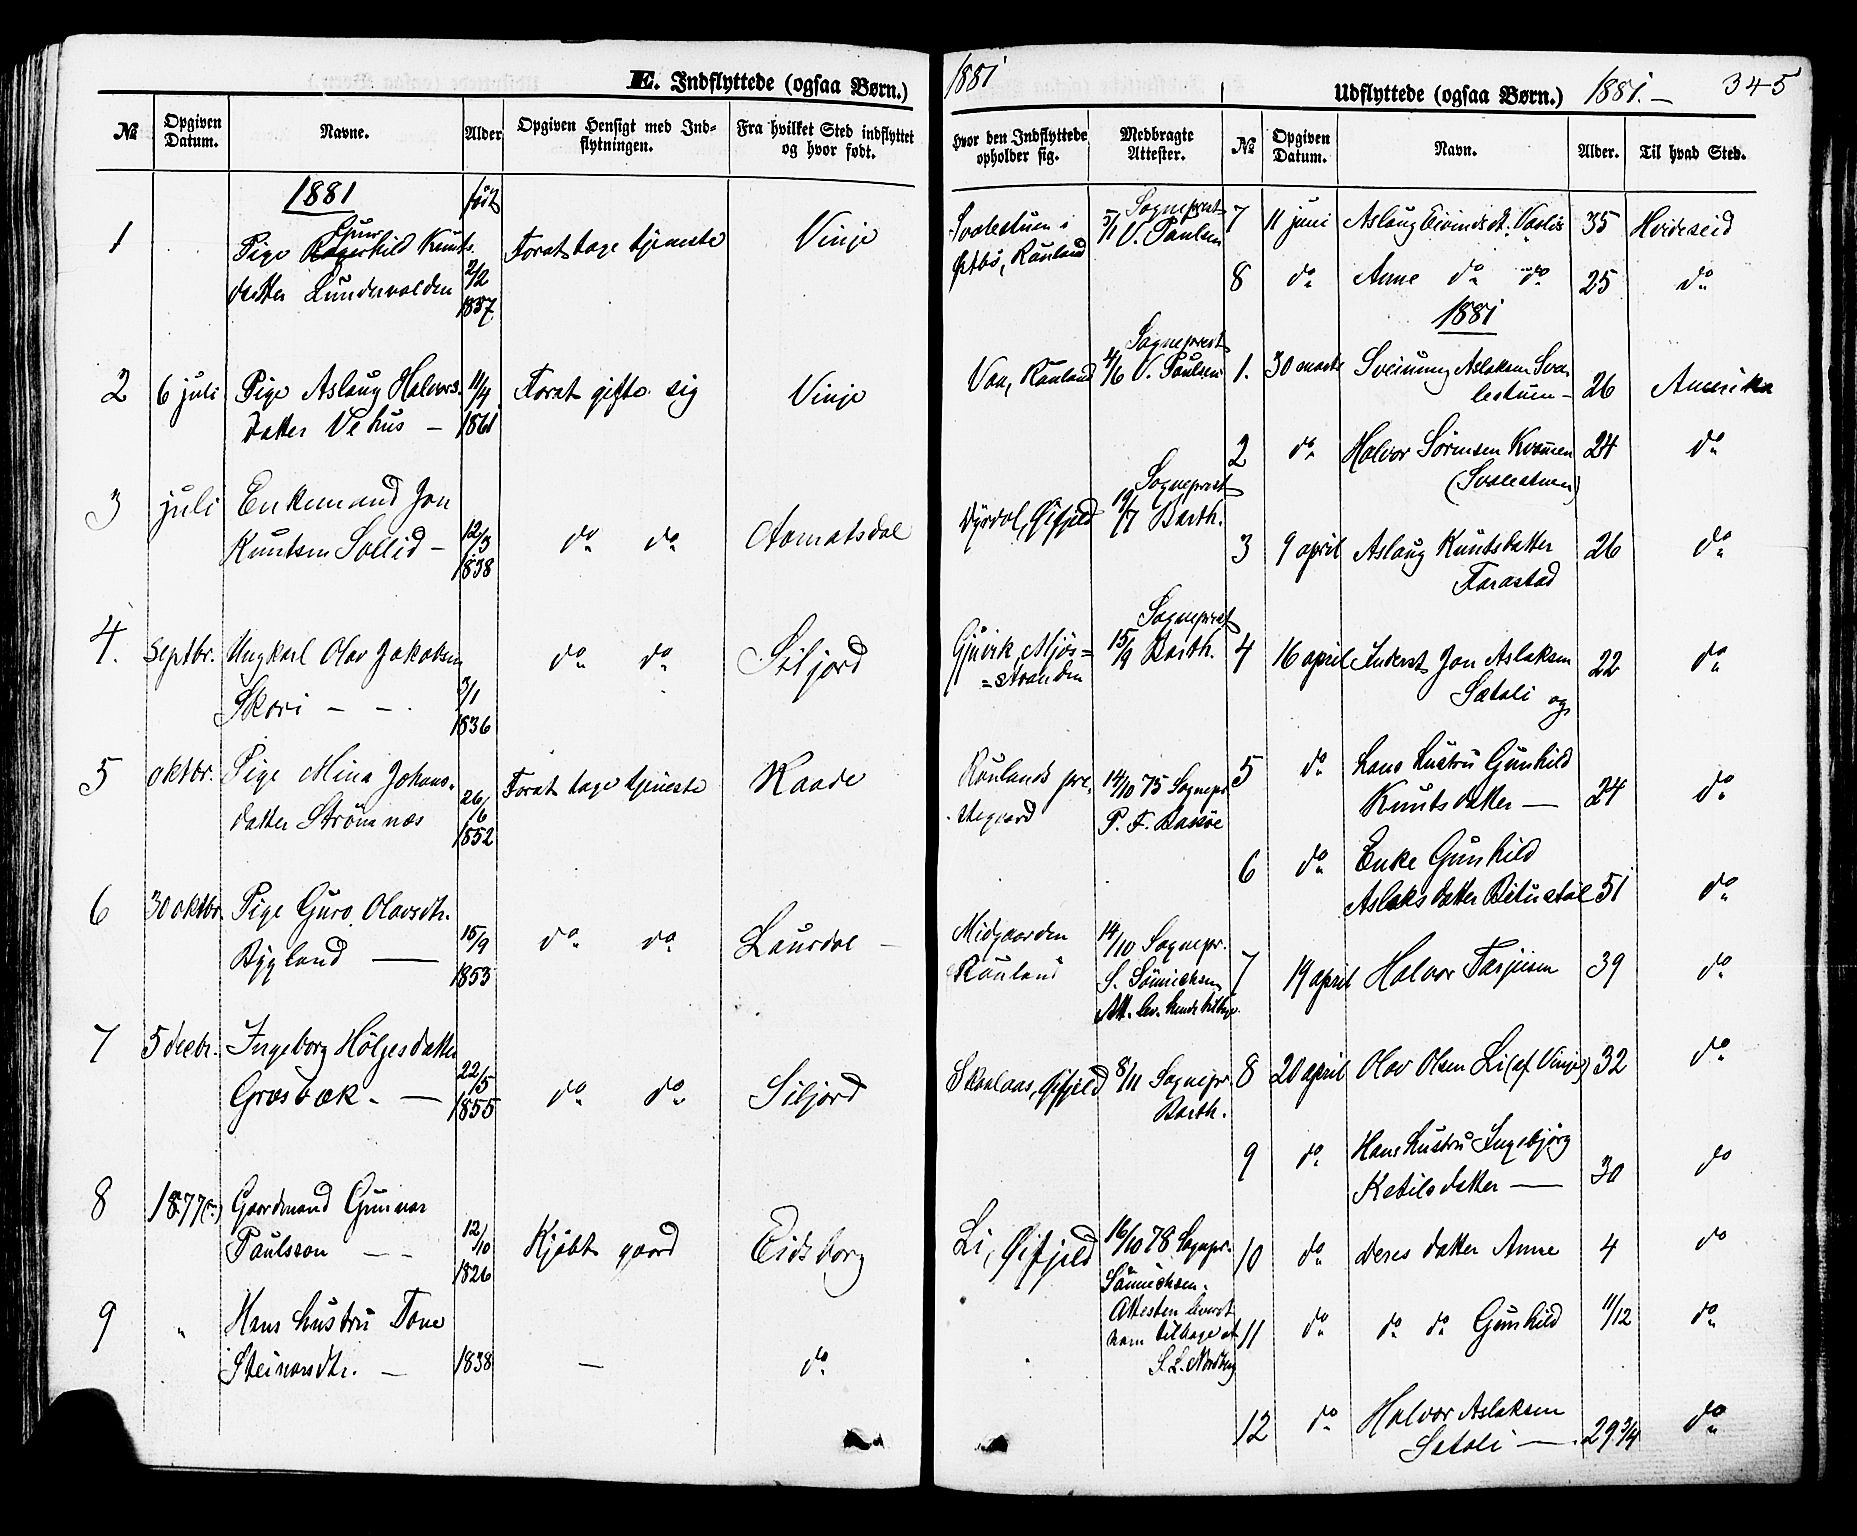 E. Indflyttede (ogsaa Børn.)
№
Opgiven Datum.
Navne.
Alder
Opgiven Hensigt med Ind-
flytningen.
Fra hvilket Sted indflyttet
og hvor født.
1881
født
1
Pige Kunts-
datter Lundevalden
2/2
1857
Forat tage tjeneste
Vinje
2
6 juli
Pige Aslaug Halvors-
datter Vehus –
11/4
1861
Forat gifte sig
Vinje
3
juli
Enkemand Jon
Kuntsen Sollid –
12/3
1838
do do
Aamotsdal
4.
Septbr.
Ungkarl Olav Jakobsen
Skori – –
3/1
1836
do do
Siljord
5
oktbr.
Pige Mina Johans-
datter Strömnæs
26/6
1852
Forat tage tjeneste
Raade
6
30 oktbr
Pige Guro Olavsdtr.
Bygland —
15/9
1853
do do
Laurdal –
7
5 decbr.
Ingeborg Høljesdatter
Græsbæk. —
22/5
1855
do do
Siljord
8
1877(?)
Gaardmand Gunnar
Paulsson – –
12/10
1826
Kjøbt gaard
Eidsborg
9
"
Hans hustru Tone
Steinarsdtr. –
1838
–
do
1881
Udflyttede (ogsaa Børn.) 1881. –
345
Hvor den Indflyttede
opholder sig.
Medbragte
Attester.
№
Opgiven
Datum.
Navn.
Alder.
Til hvad Sted.
Svalestuen i
Østbø, Rauland
5/11 Sogneprest
V. Paulsen
7
11 juni
Aslaug Eivindsdt. Vaslis
35
Hvideseid
8
do
Anne do do
25
do
1881
Vaa, Rauland
4/6 Sogneprest
V. Paulsen
1.
30 marts
Sveinung Aslaksen Sva-
lestuen –
26
Amerika
2
do
Halvor Sørensen Kvamen
(Svalestuen)
24
do
Dyrdal, Øifjeld
19/7 Sogneprest
Barth.
3
9 april
Aslaug Kuntsdatter
Farastad
26
do
Gjuvik, Mjös=
=stranden
15/9 Sogneprest
Barth.
4
16 april
Inderst Jon Aslaksen
Sætali og
22
do
Raulands pre-
stegaard
14/10 75 Sognepr
P. F. Bassøe
5
do
hans hustru Gunhild
Kuntsdatter —
24
do
6
do
Enke Gunhild
Aslaksdatter Bitustøl
51
do
Midgaarden
Rauland
14/10 Sognepr.
S. Sønnichsen
Att. lev. hende tilbage.
7
19 april
Halvor Tarjeisen
39
do
Skaalaas, Øifjeld
8/11 Sognepr.
Barth.
8
20 april
Olav Olsen Li (af Vinje)
32
do
9
do
Hans hustru Ingebjørg
Ketilsdatter —
30
do
Li, Øifjeld
16/10 78 Sognepr.
Sönnichsen.
Attesten leveret
ham tilbage af
S. L. Nordberg
10
do
Deres datter Anne
4
do
11
do
do do Gunhild
11/12
do
12
do
Halvor Aslaksen
Sætali —
29 3/4
do